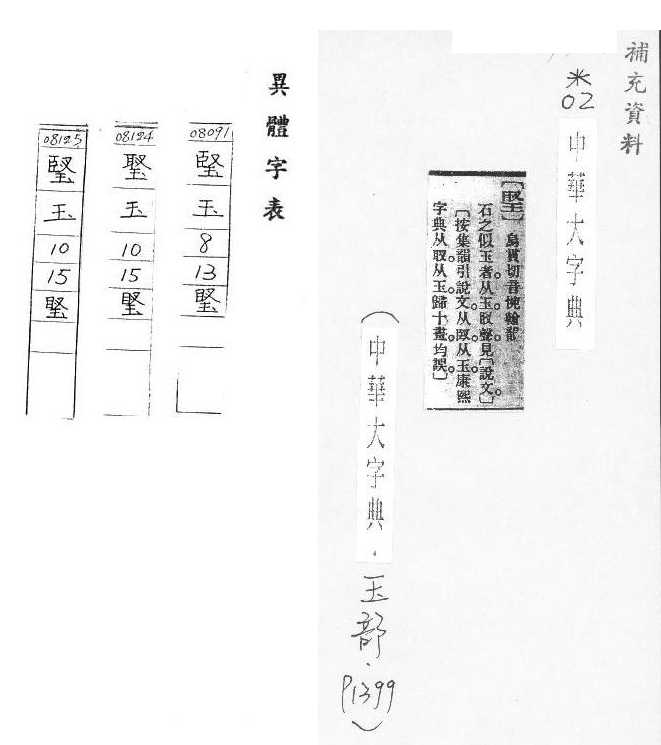 補充資料
※
02
中華大字典
烏貫切音惋翰韻
石之似玉者从玉 聲見〔說文〕
〔按集韻引說文从 从玉康熙
字典从 从玉歸十畫均誤〕
(中華大字典．玉部．P1399)
異體字表
08091
玉
8
13
08124
玉
10
15
08125
玉
10
15